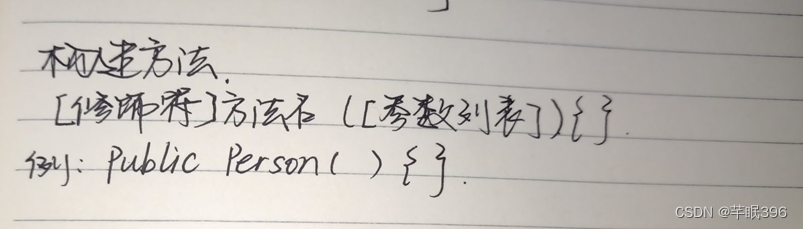 构造方法.
[修饰符]方法名([参数列表]){}.
例: Public Person( ) { }.
CSDN @芊眠396